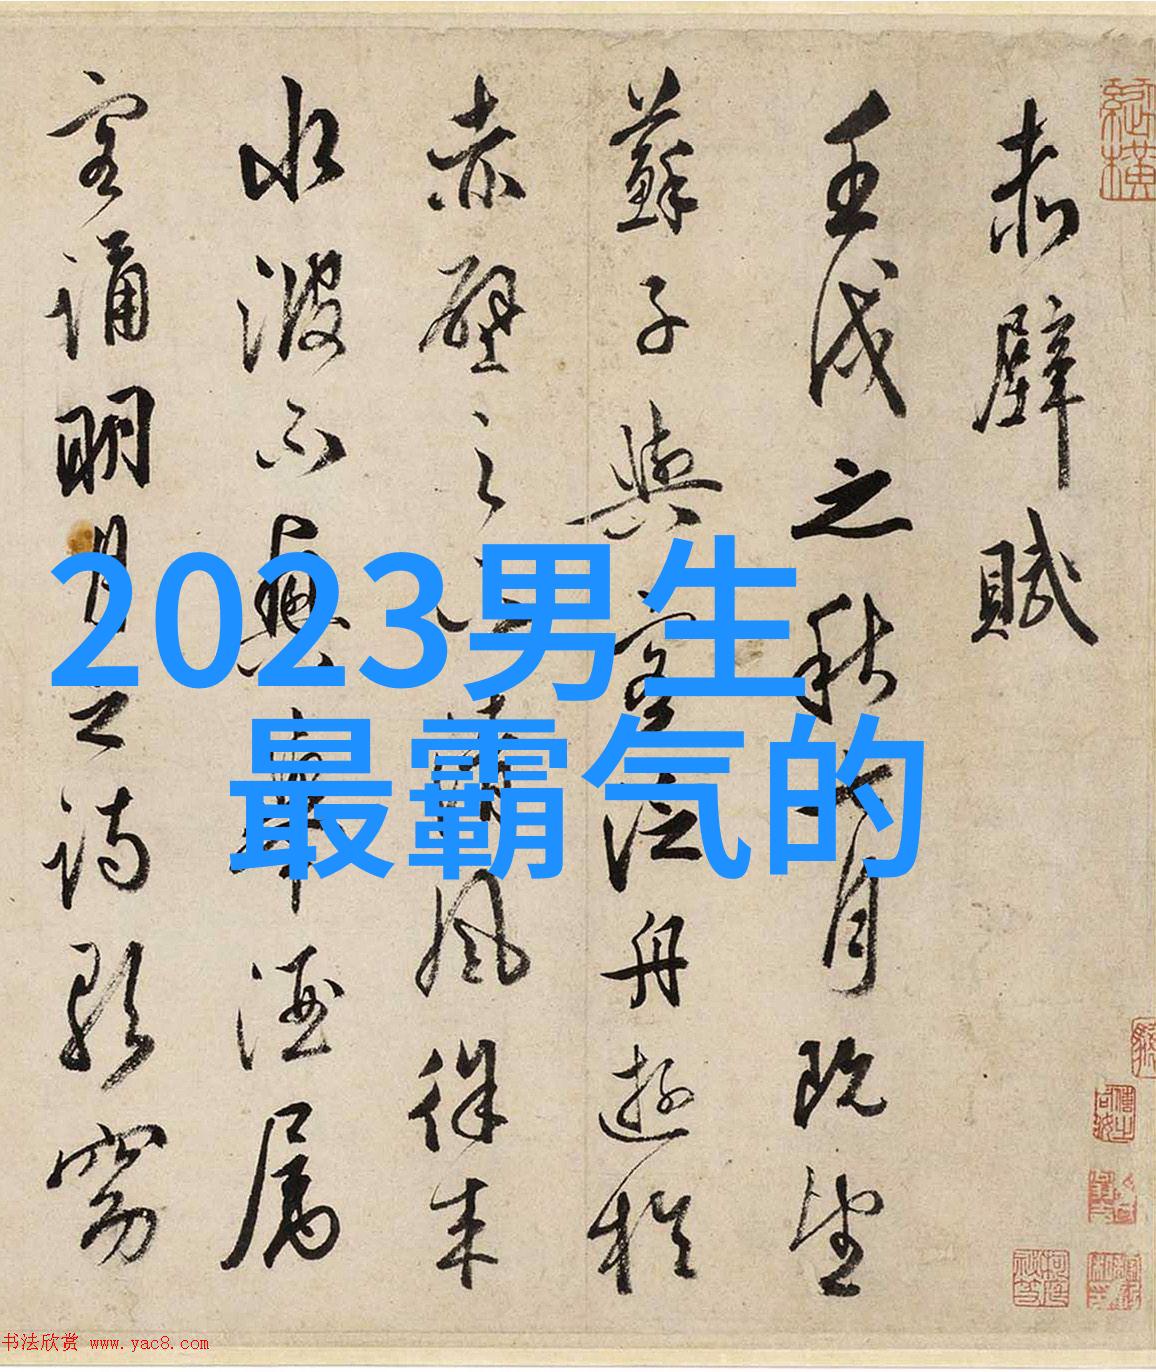 赤壁賦
壬戌之秋七月既望
蘇子與客泛舟遊於
赤壁之下清風徐来
水波不興舉酒屬
客誦明月之詩歌窈
2023男生
最霸气的
书法欣赏 www.yac8.com